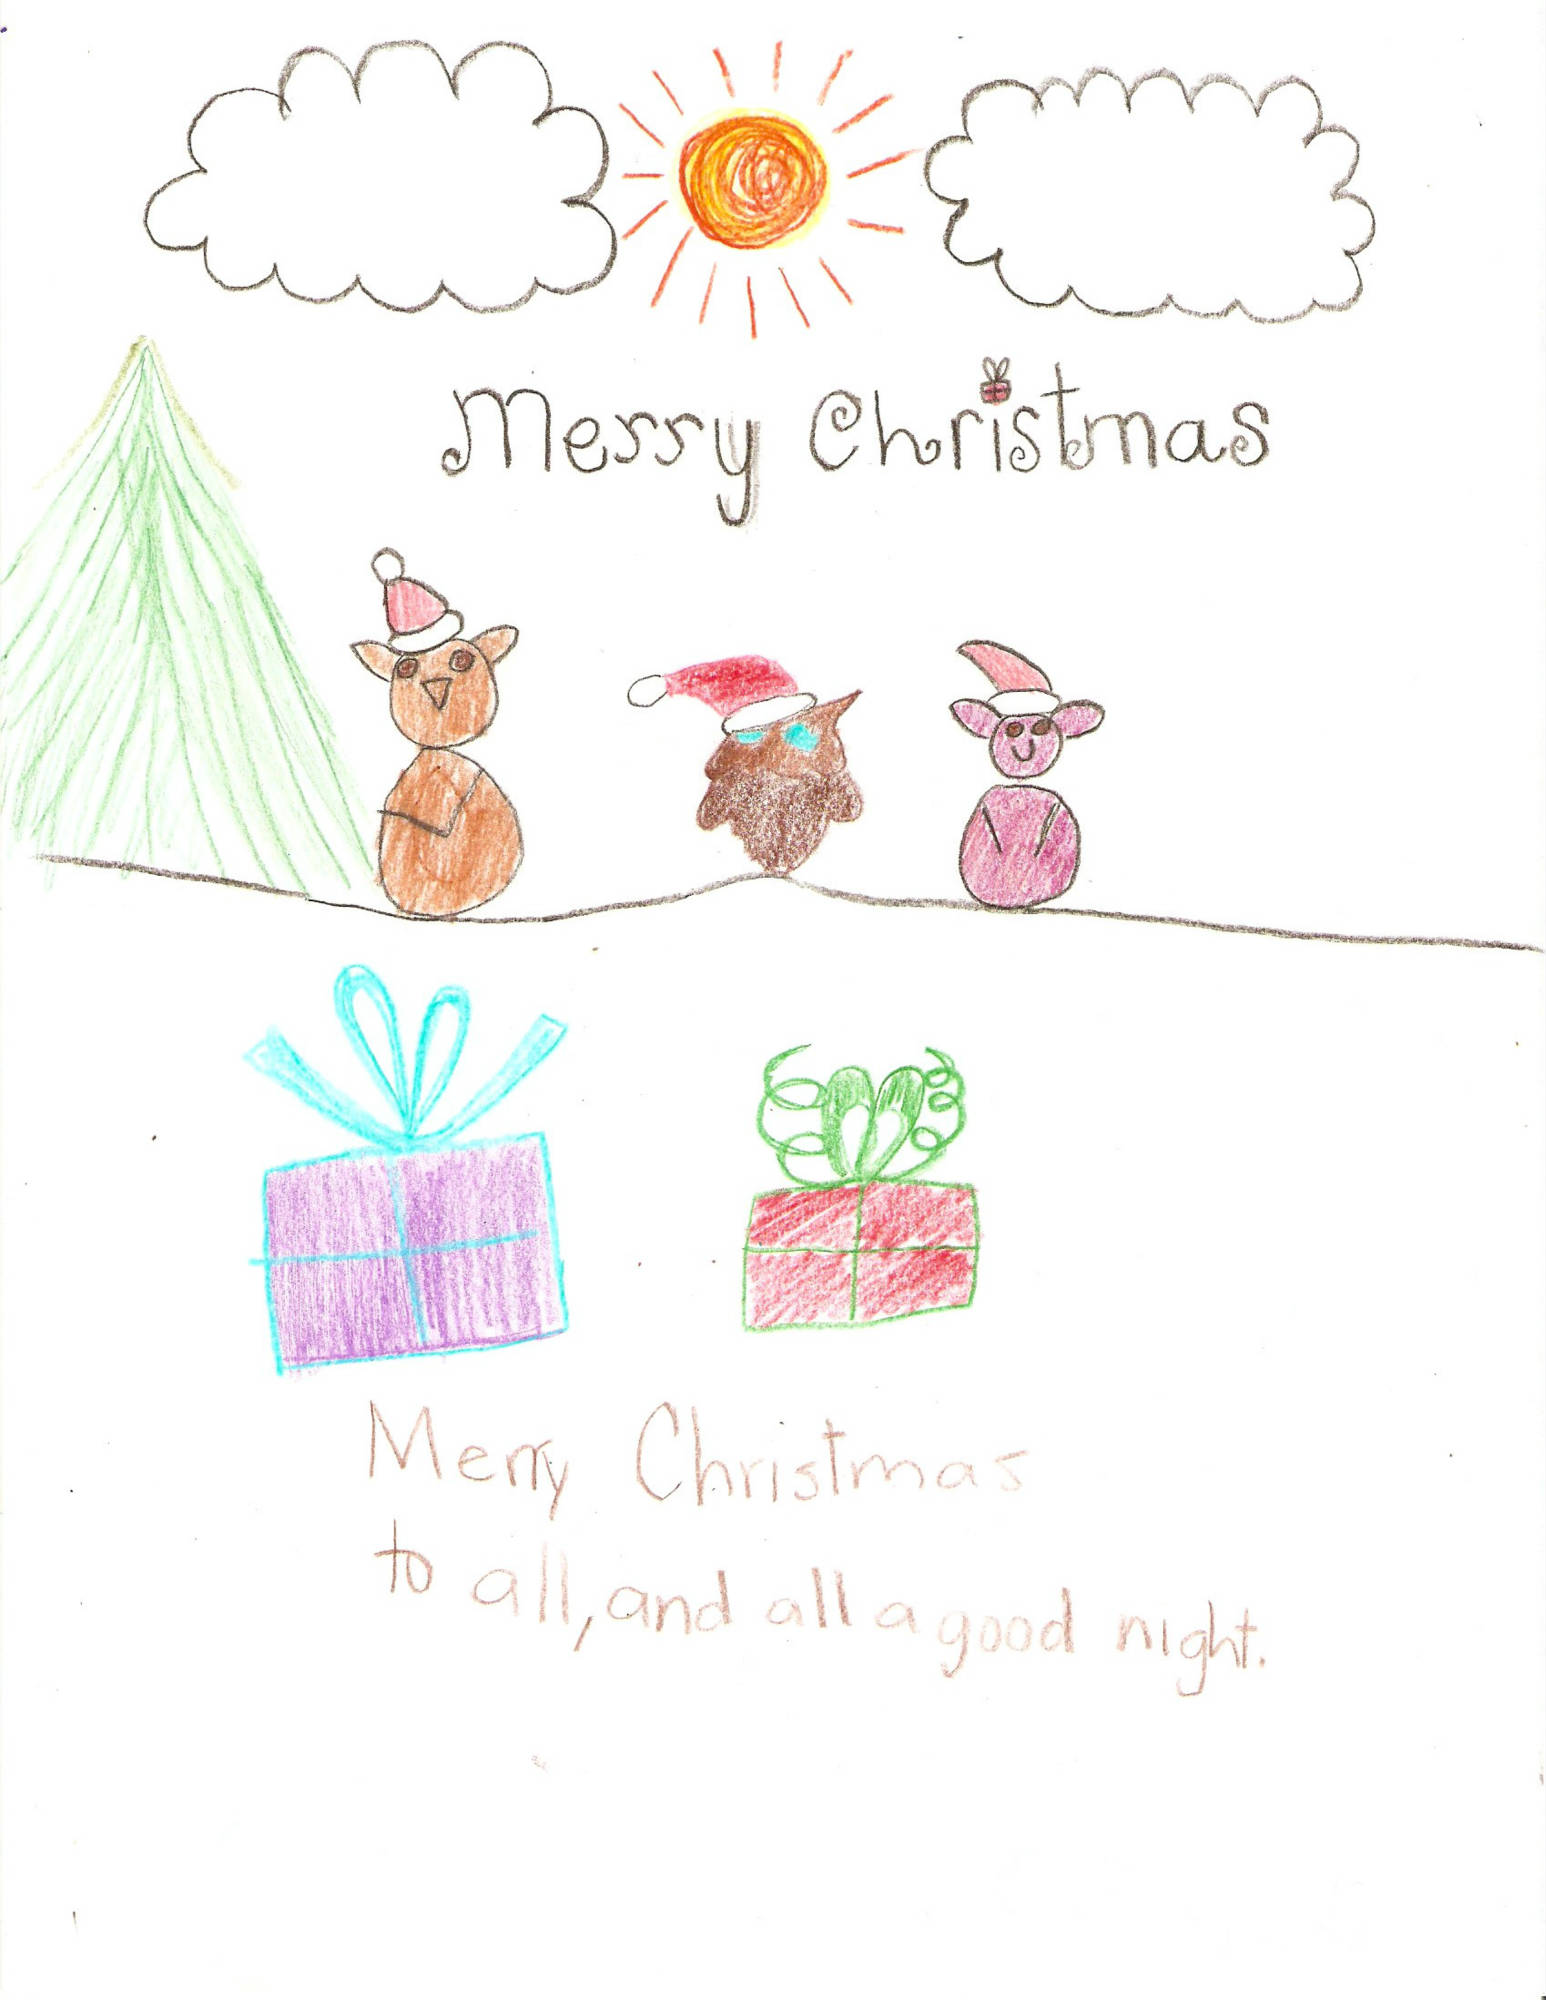 Merry Christmas
Merry Christmas
to all, and all a good night.